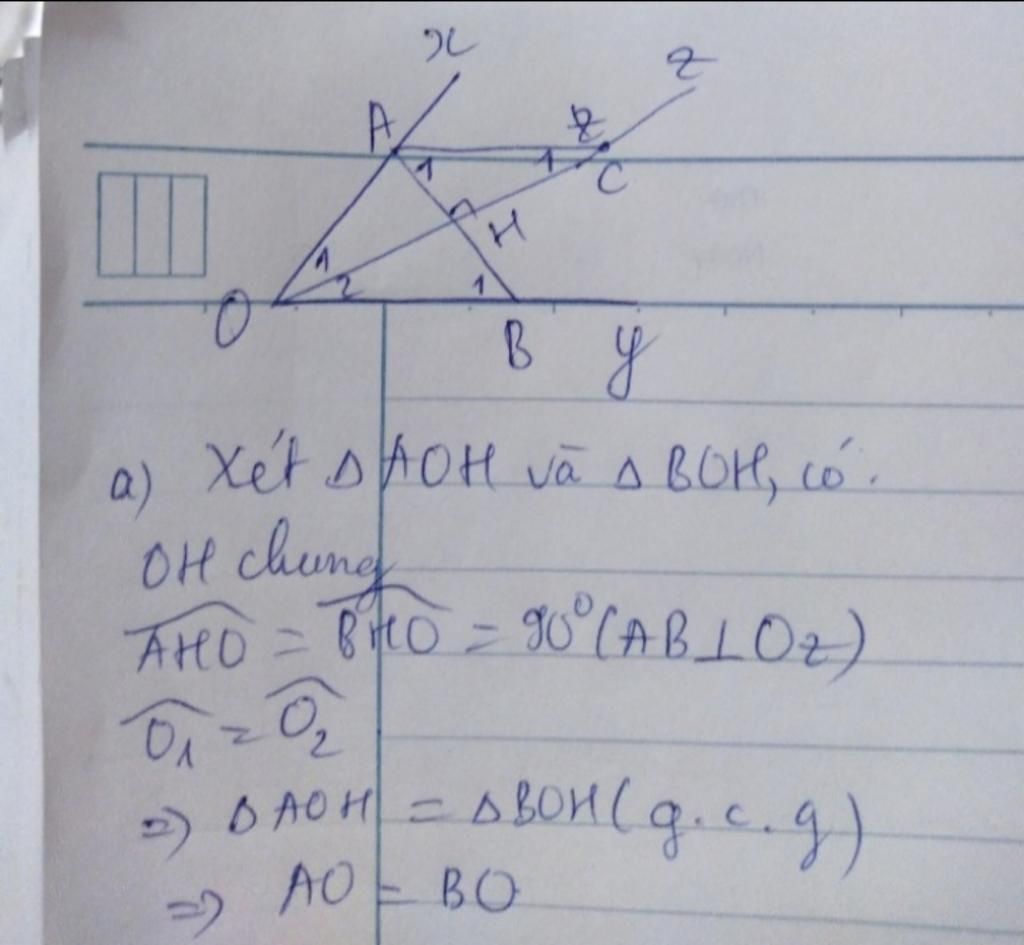 x
z
A
1
1
C
H
1
2
1
O
B
y
a) Xét △ AOH và △ BOH, có.
OH chung
\widehat{AHO} = \widehat{BHO} = 90° (AB ⊥ Oz)
\widehat{O₁} = \widehat{O₂}
=> △ AOH = △BOH (g.c.g)
=> AO = BO